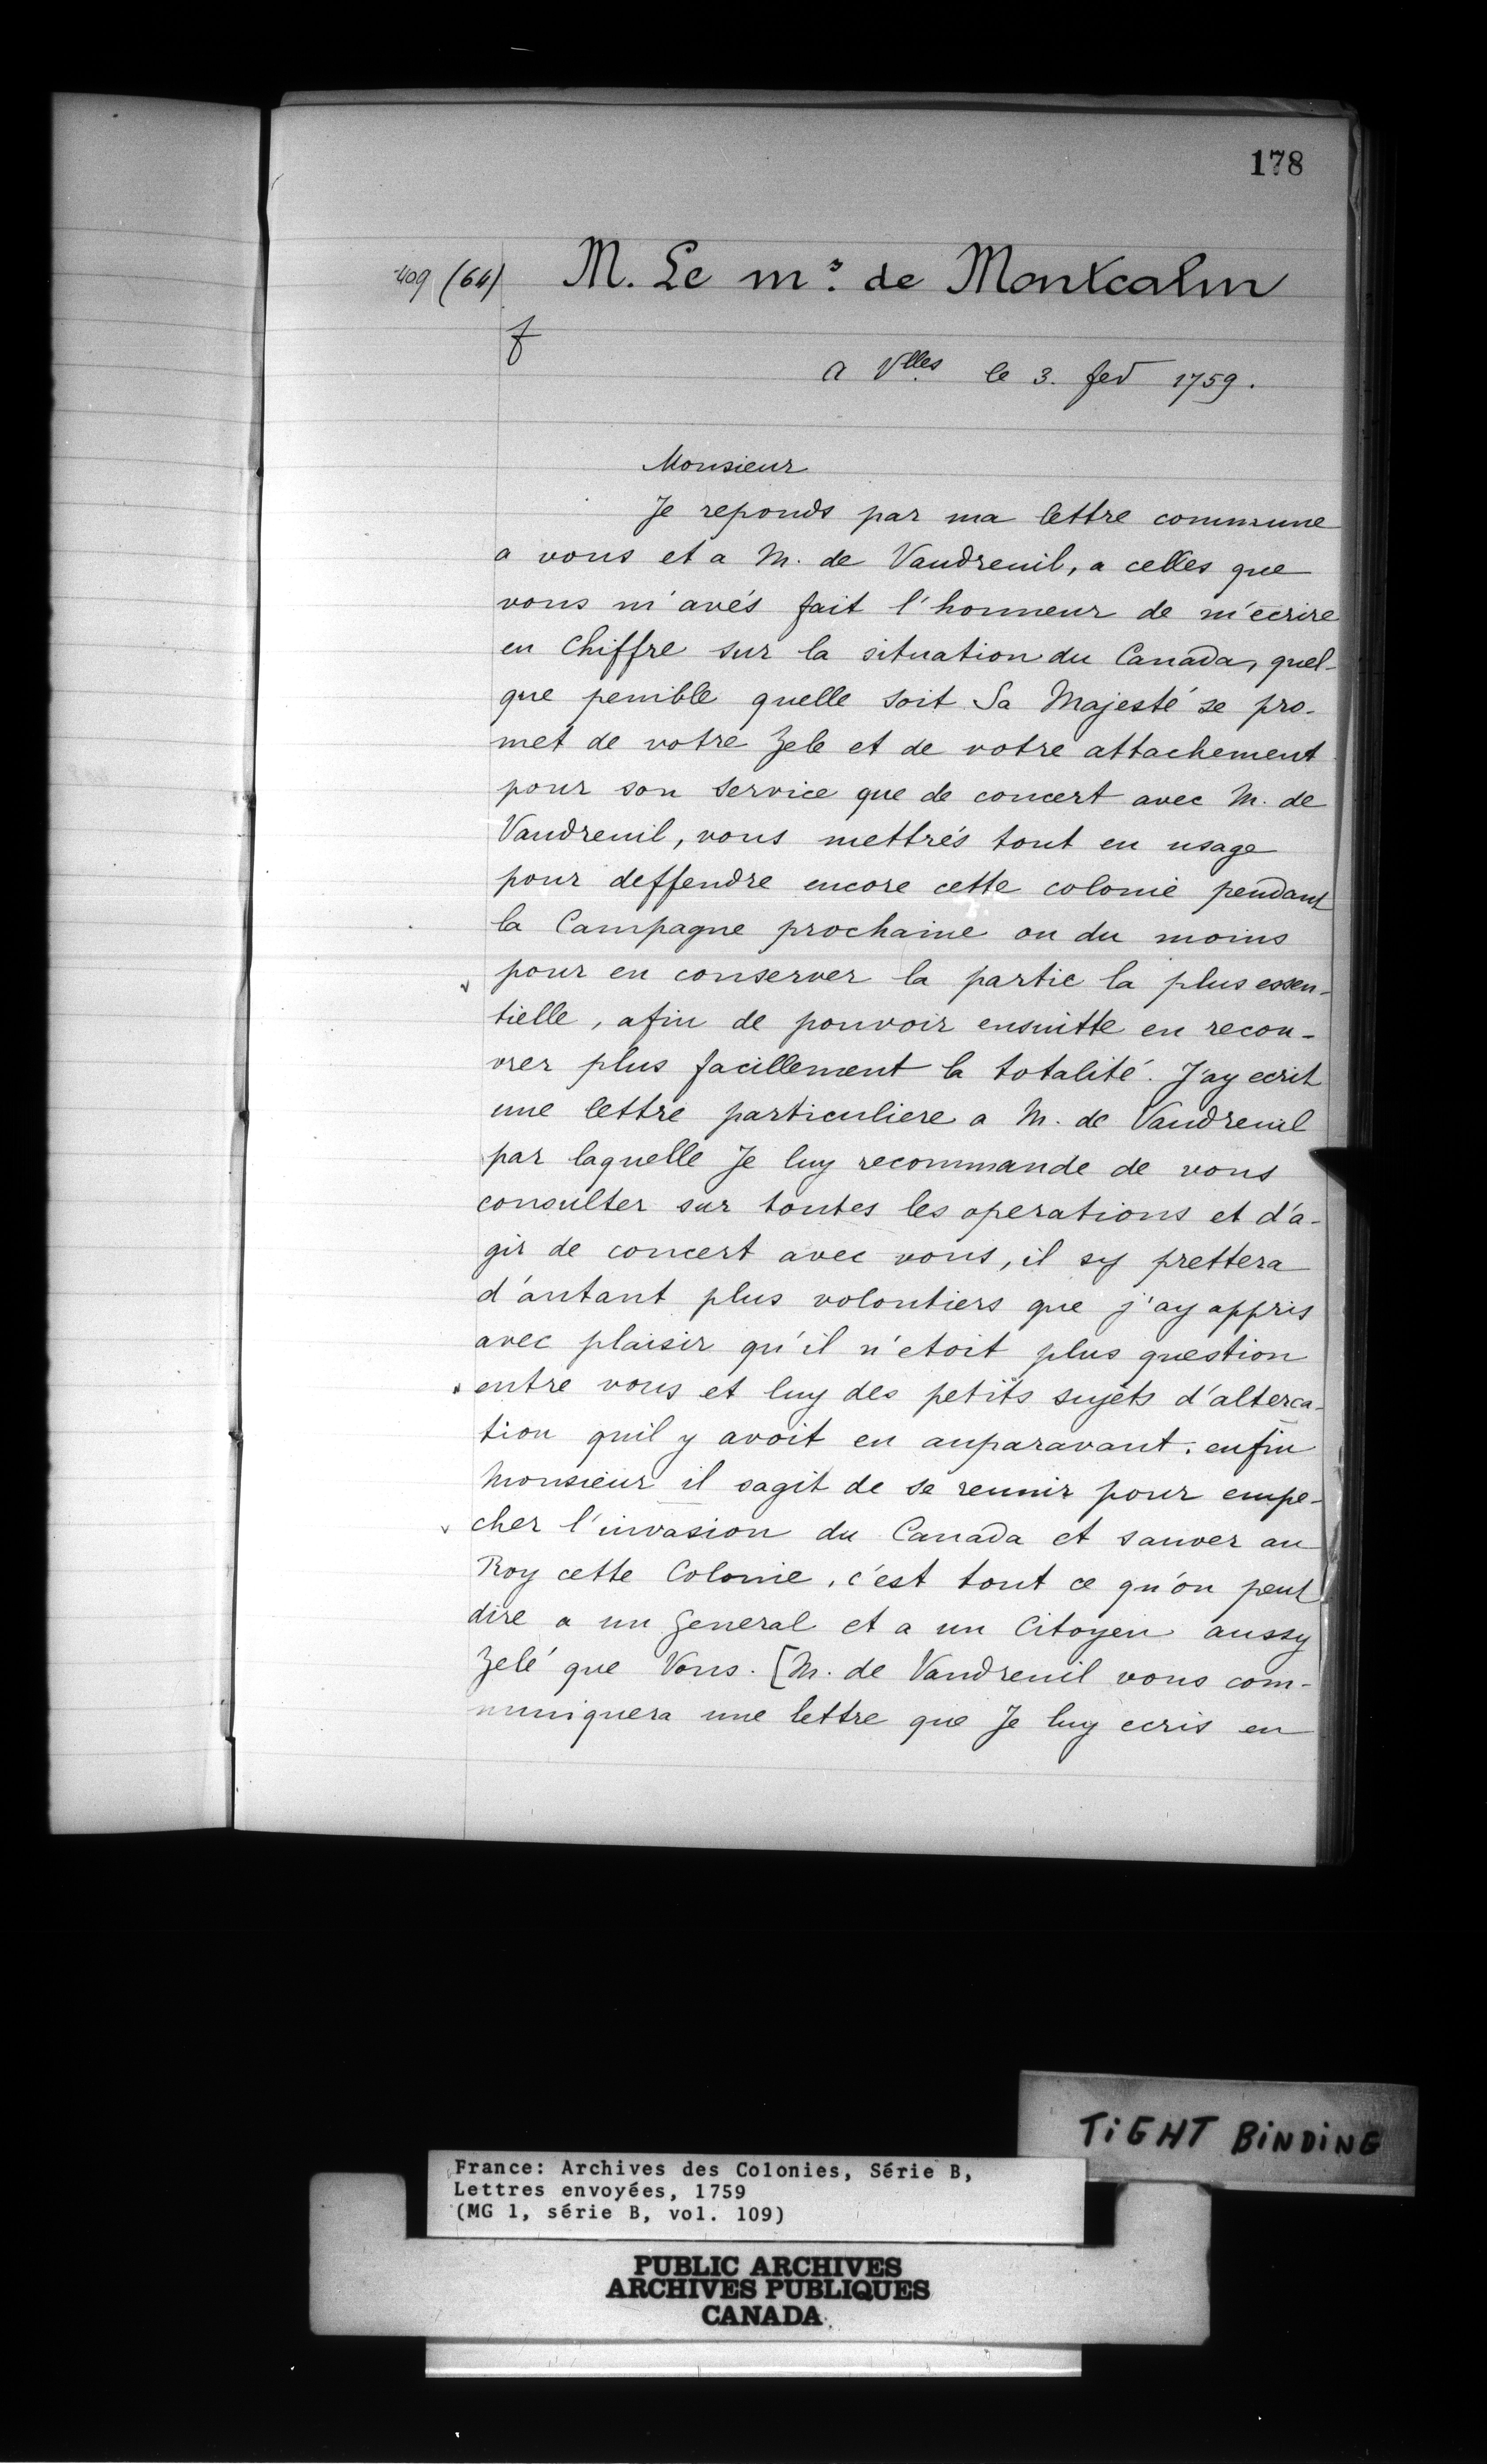 178
409 (64) M. Le m.s de Montcalm
f
a Vlles le 3. fev 1759.
Monsieur
Je reponds par ma lettre commune
a vous et a M. de Vaudreuil, a celles que
vous m'avés fait l'honneur de m'ecrire
en Chiffre sur la situation du Canada, quel-
que penible quelle soit Sa Majesté se pro-
met de votre Zele et de votre attachement
pour son Service que de concert avec M. de
Vaudreuil, vous mettrés tout en usage
pour deffendre encore cette colonie pendant
la Campagne prochaine ou du moins
pour en conserver la partie la plus essen-
tielle, afin de pouvoir ensuitte en recou-
vrer plus facillement la totalité. J'ay ecrit
une lettre particuliere a M. de Vaudreuil
par laquelle Je luy recommande de vous
consulter sur toutes les operations et d'a-
gir de concert avec vous, il sy prettera
d'autant plus volontiers que j'ay appris
avec plaisir qu'il n'etoit plus question
entre vous et luy des petits sujets d'alterca-
tion quil y avoit eu auparavant. enfin
Monsieur il sagit de se reunir pour empe-
cher l'invasion du Canada et sauver au
Roy cette Colonie, c'est tout ce qu'on peut
dire a un General et a un Citoyen aussy
Zelé que Vous. [M. de Vaudreuil vous com-
muniquera une lettre que Je luy ecris en
TiGHT BiNDiNG
France: Archives des Colonies, Série B,
Lettres envoyées, 1759
(MG 1, série B, vol. 109)
PUBLIC ARCHIVES
ARCHIVES PUBLIQUES
CANADA